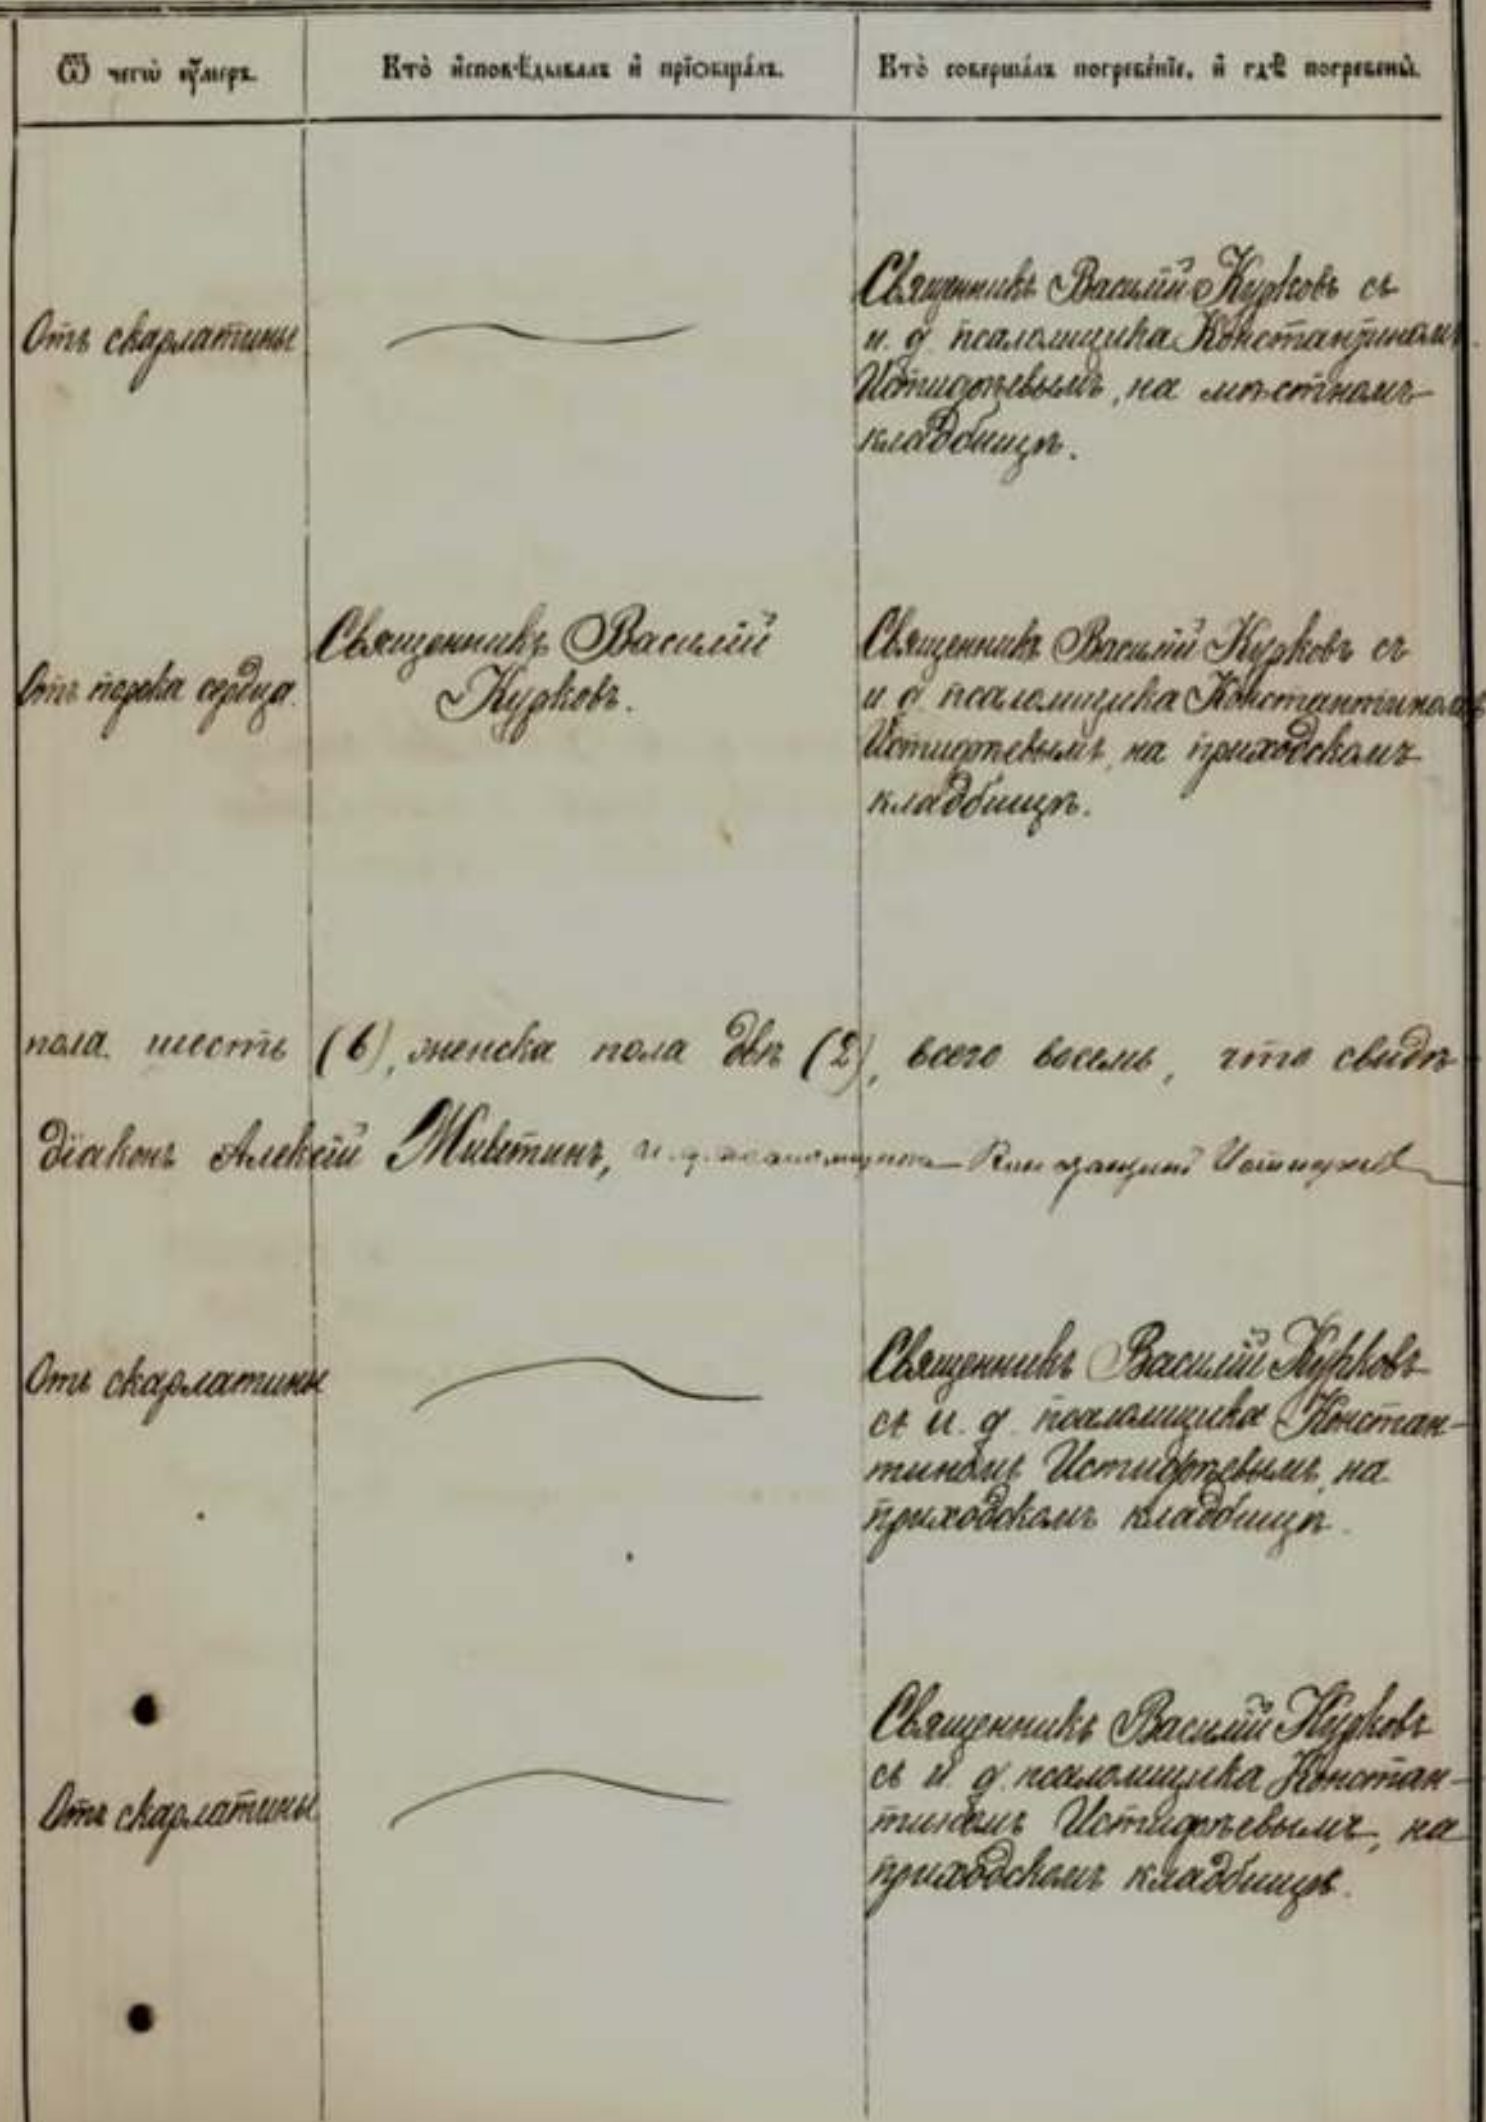 Ѿ чегѡ ᲂу҆меръ. Кто̀ и҆сповѣ́дывалъ и҆ прїѡбща́лъ. Кто̀ соверша́лъ погребе́нїе, и҆ гдѣ̀ погребены̀.
Отъ скарлатины
Священникъ Василій Курковъ съ
и. д. псаломщика Константиномъ
Истифѣевымъ, на мѣстномъ
кладбищѣ.
Отъ порока сердца.
Священникъ Василій
Курковъ.
Священникъ Василій Курковъ съ
и. д. псаломщика Константиномъ
Истифѣевымъ, на приходскомъ
кладбищѣ.
пола шесть (6), женска пола двѣ (2), всего восемь, что свидѣ
діаконъ Алексій Мивтинъ, и. д. псаломщика Константинъ Истифѣевъ
Отъ скарлатины
Священникъ Василій Курковъ
съ и. д. псаломщика Констан-
тиномъ Истифѣевымъ, на
приходскомъ кладбищѣ.
Отъ скарлатины
Священникъ Василій Курковъ
съ и. д. псаломщика Констан-
тиномъ Истифѣевымъ, на
приходскомъ кладбищѣ.